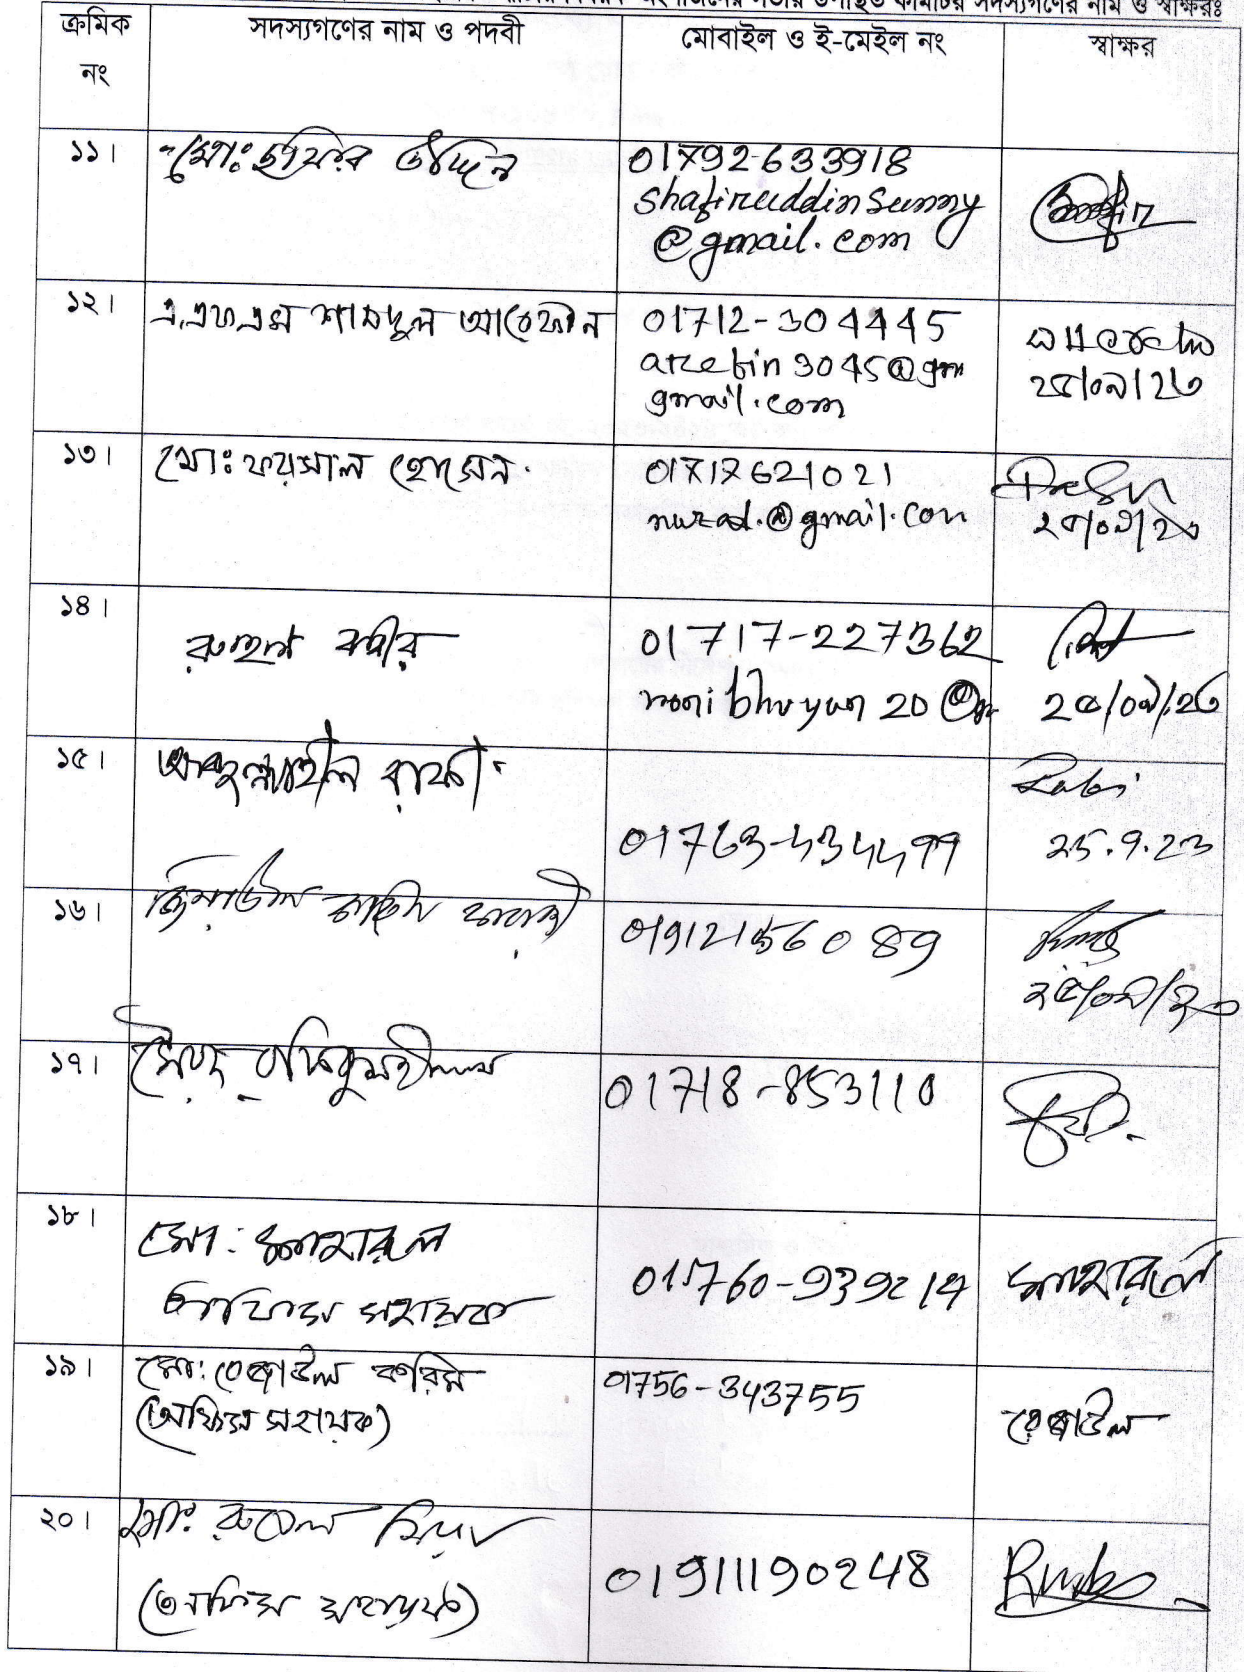 সভায় উপস্থিত কমিটির সদস্যগণের নাম ও স্বাক্ষরঃ
ক্রমিক নং
সদস্যগণের নাম ও পদবী
মোবাইল ও ই-মেইল নং
স্বাক্ষর
১১।
মোঃ ছফির উদ্দিন
01792-633918
shafiruddinsunny
@gmail.com
১২।
এ.এফ.এম শামছুল আরেফীন
01712-304445
arefin3045@gm
gmail.com
২৫/০৯/২৩
১৩।
মোঃ ফয়সাল হোসেন
01717621021
murad.@gmail.com
২৫/০৯/২৩
১৪।
রুহুল কবীর
01717-227362
monibhuyan20@
২৫/০৯/২৩
১৫।
রাফী
01763-434499
25.9.23
১৬।
জিয়াউল
01912156089
২৫/০৯/২৩
১৭।
সৈয়দ
01718-853110
১৮।
মো:
অফিস সহায়ক
১৯।
মো: রেজাউল করিম
(অফিস সহায়ক)
01756-343755
রেজাউল
২০।
মো: রুবেল মিয়া
(অফিস সহায়ক)
01911190248